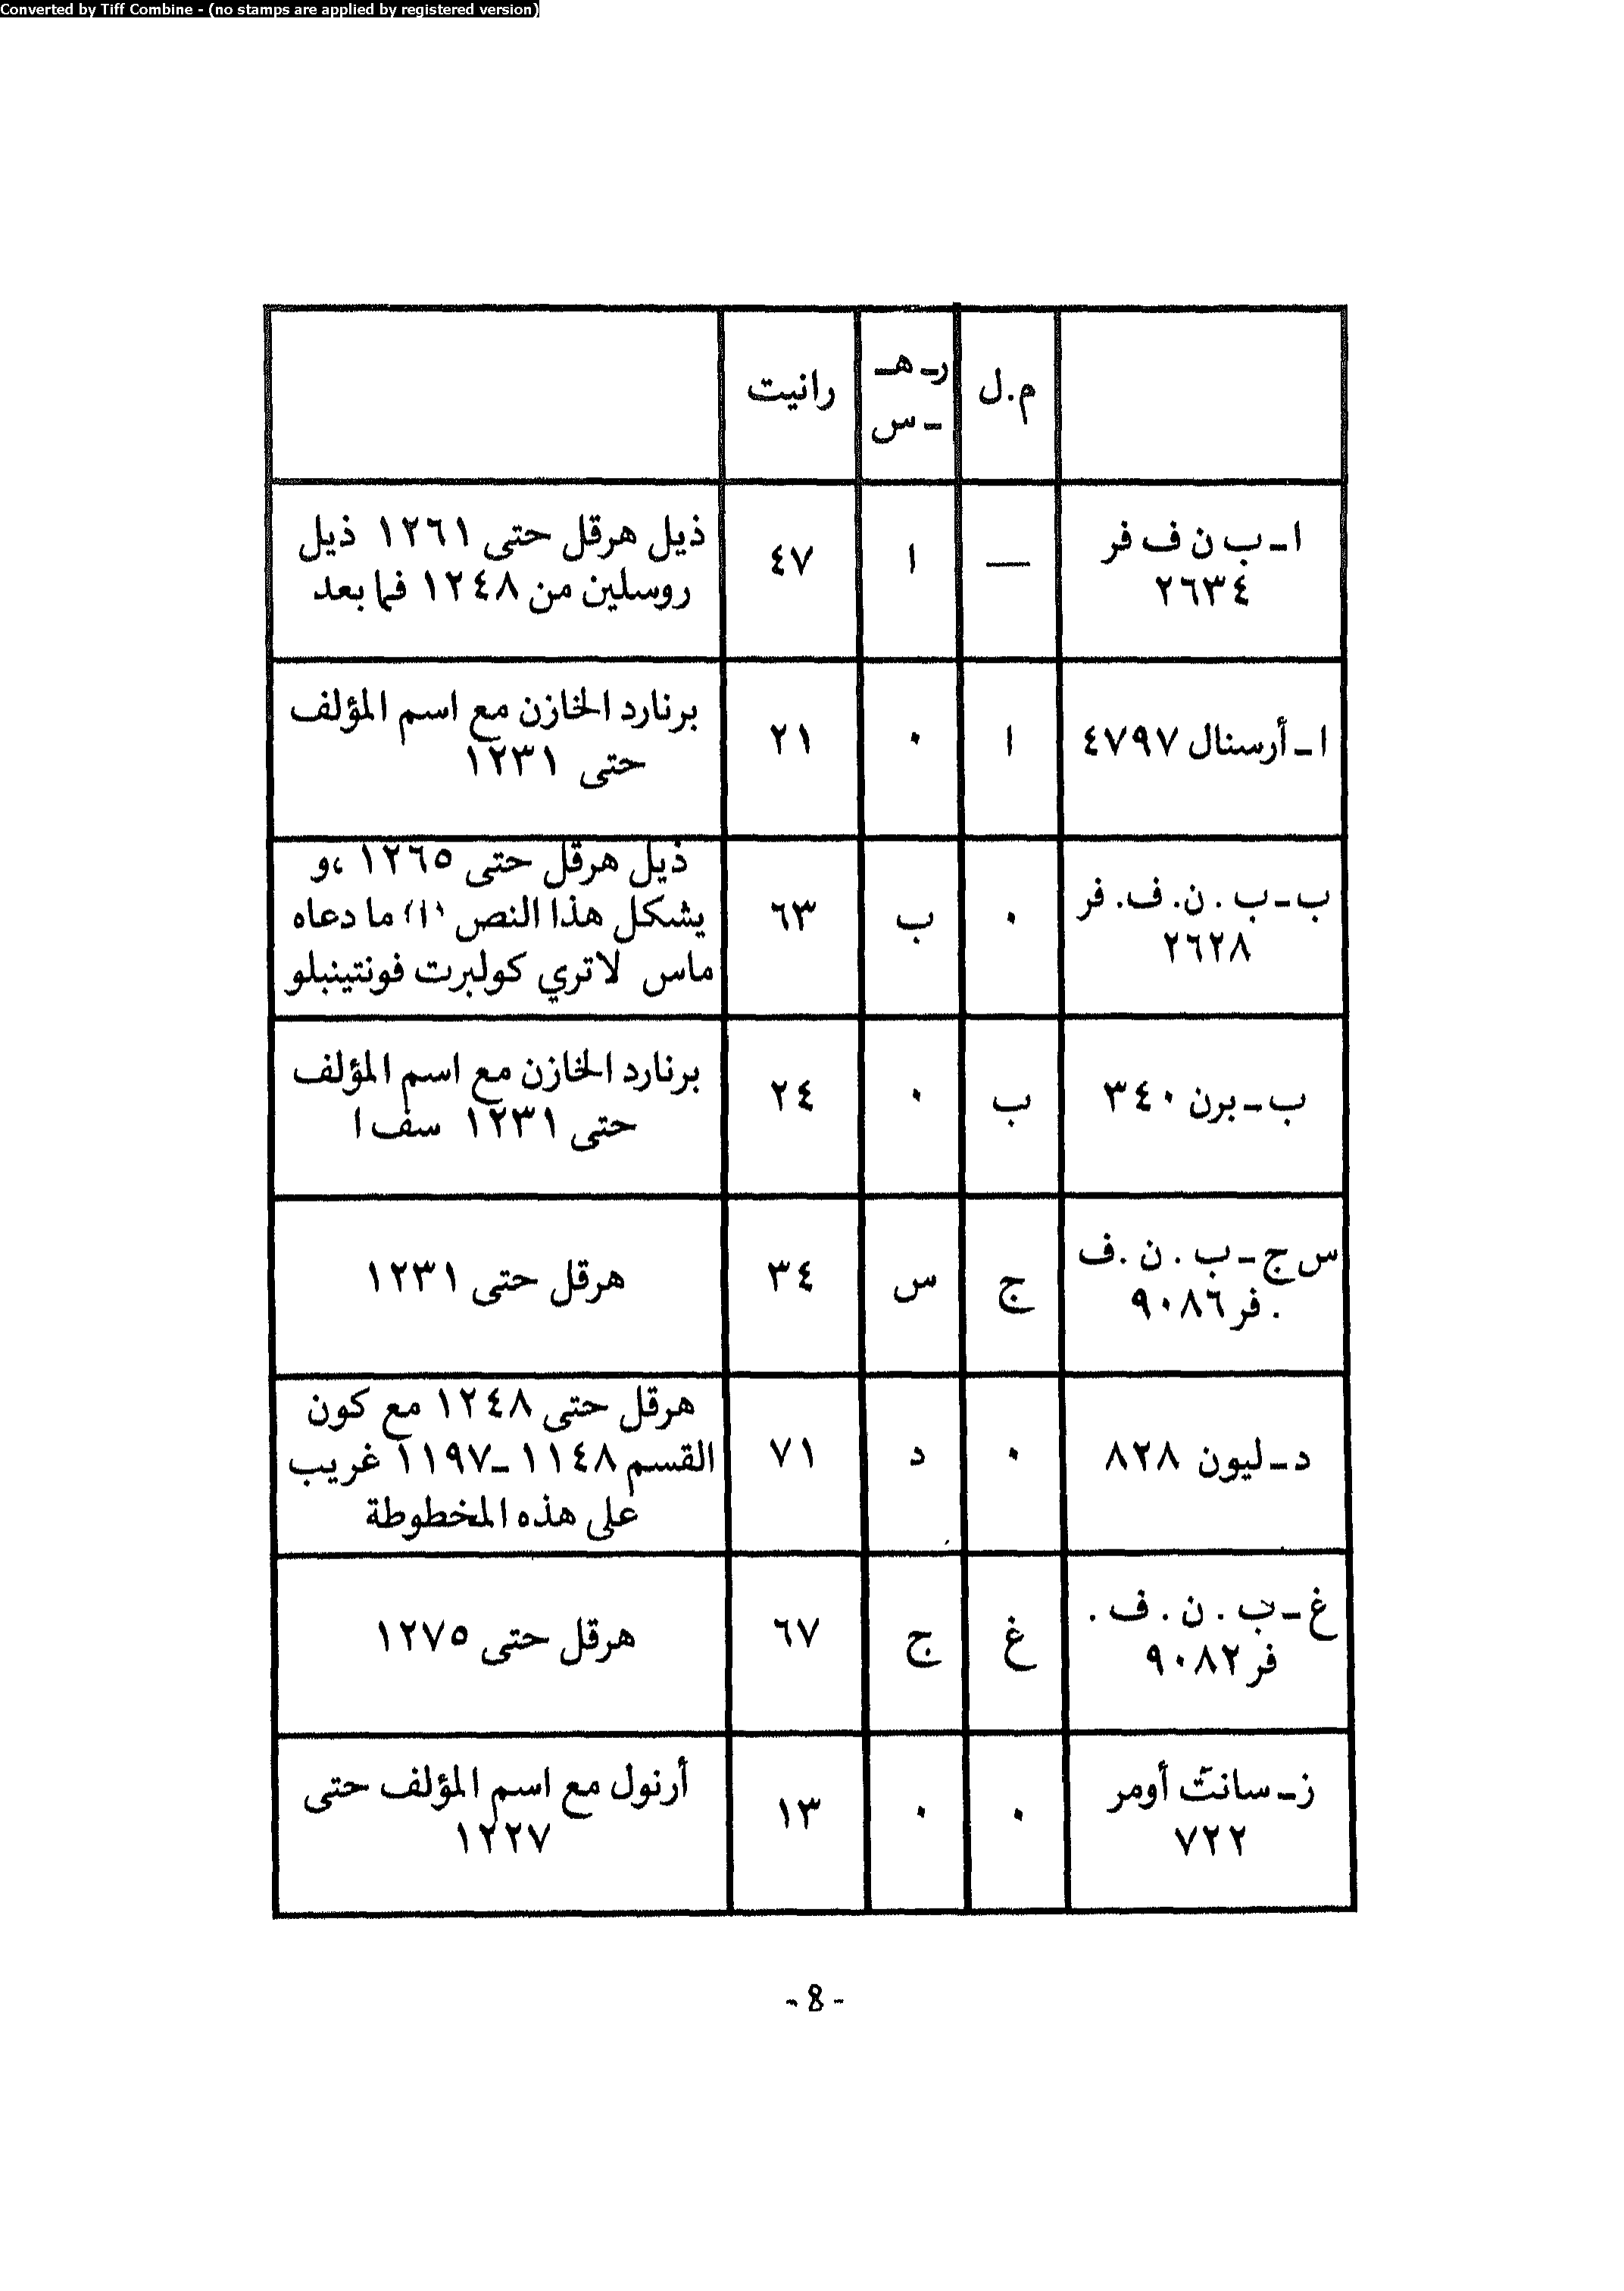 Converted by Tiff Combine - (no stamps are applied by registered version)
م.ل
رـ هـ
ـ س
رانيت
ا ـ ب ن ف فر
٢٦٣٤
—
ا
٤٧
ذيل هرقل حتى ١٢٦١ ذيل
روسلين من ١٢٤٨ فما بعد
ا ـ أرسنال ٤٧٩٧
ا
٠
٢١
برنارد الخازن مع اسم المؤلف
حتى ١٢٣١
ب ـ ب . ن. ف. فر
٢٦٢٨
٠
ب
٦٣
ذيل هرقل حتى ١٢٦٥ ،و
يشكل هذا النص (ا) ما دعاه
ماس لاتري كولبرت فونتينبلو
ب ـ برن ٣٤٠
ب
٠
٢٤
برنارد الخازن مع اسم المؤلف
حتى ١٢٣١ سف ا
س ج ـ ب . ن .ف
. فر ٩٠٨٦
ج
س
٣٤
هرقل حتى ١٢٣١
د ـ ليون ٨٢٨
٠
د
٧١
هرقل حتى ١٢٤٨ مع كون
القسم ١١٤٨ـ١١٩٧ غريب
على هذه المخطوطة
غ ـ ب . ن . ف .
فر ٩٠٨٢
غ
ج
٦٧
هرقل حتى ١٢٧٥
ز ـ سانت أومر
٧٢٢
٠
٠
١٣
أرنول مع اسم المؤلف حتى
١٢٢٧
- 8 -